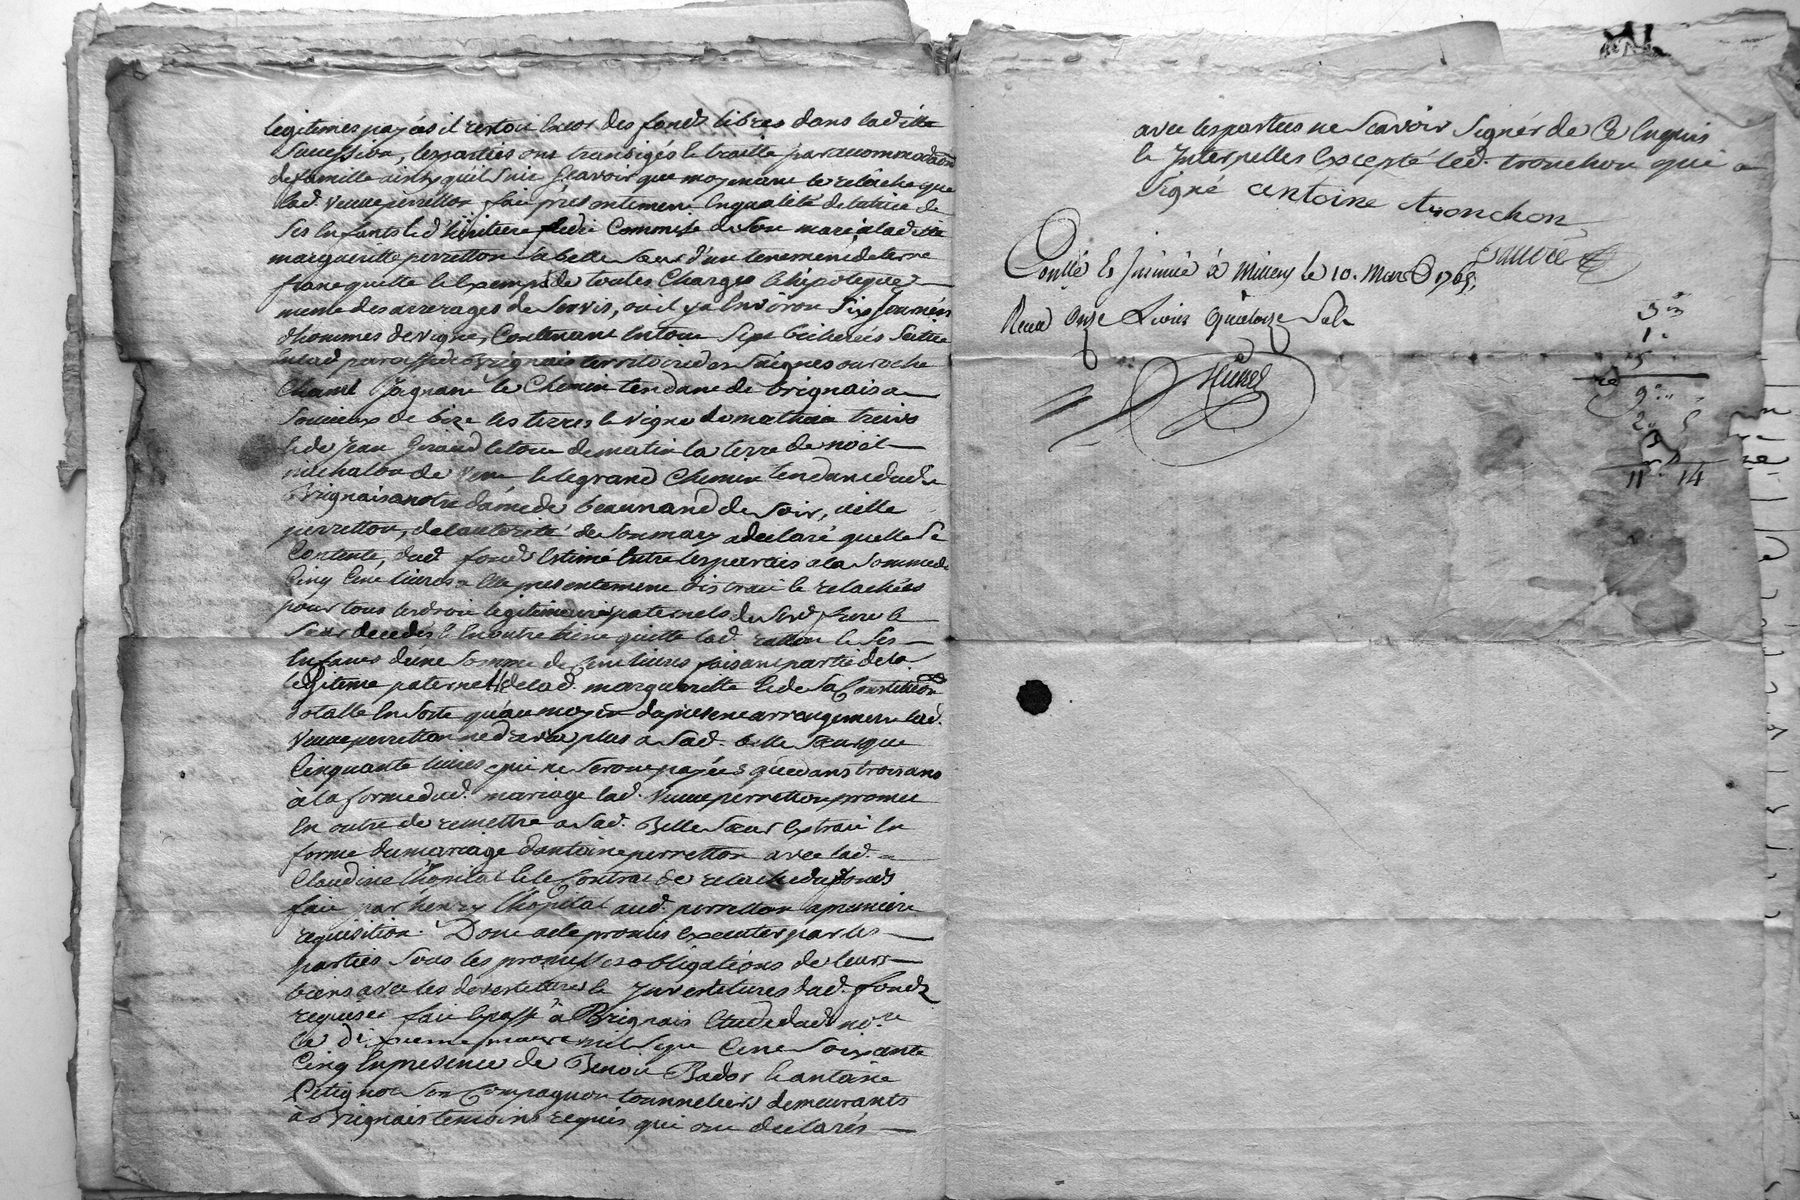 legitimes payées il restoit encor des fonds libres dans ladite
Succession, lesparties ont transigés et traitté par accommodation
de famille ainsy quil suit Scavoir que moyenant le relâche que
lad. veuve perretton fait présentement en qualité de tutrice de
Ses enfants et d'héritiere fidei Commise de Son mari a ladite
margueritte perretton Sa belle Sœur d'un tenement de terre
franc quitte et exempt de toutes Charges et hipoteque
meme des arrerages de Servis, où il y a environ Six Journées
d'hommes de vigne, Contenant entout Sept bicherés Scitué
en lad paroisse de Brignais territoire des Saignes ou roche
Chamt Joignant le Chemin tendant de Brignais a
Soucieux de bize les terres et vigne de mathieu
et de Jean Giraud le tout de matin la terre de noël
michalon de vent et le grand Chemin tendant dud.
Brignais a notre dame de beaunand de Soir, icelle
perretton, de lautorité de Son mary a declaré quelle Se
Contente, dud fonds Estimé Entre lesparties a la Somme de
Cinq Cent livres a Elle presentement distrait et relachées
pour tous les droits legitimaires paternels de Sesd frere et
Sœur decedés et En outre tient quitte lad. et Ses
Enfants d'une Somme de Cent livres faisant partie de la
legitime paternelle de lad. margueritte et de Sa Constitution
dotalle En Sorte qu'au moyen du present arrangement lad.
veuve perretton ne devra plus a Sad. belle Sœur que
Cinquante livres qui ne Seront payées que dans trois ans
à la forme dud. mariage lad. veuve perretton promet
En outre de remettre a Sad. Belle Sœur Extrait En
forme du mariage d'antoine perretton avec lad.
Claudine lhopital et le Contrat de relache du fonds
fait par henry lhopital aud. perretton a premiere
requisition. Dont acte promis executer par les
parties Sous les promesses obligations de leurs
biens avec les devestitures et Investitures dud. fonds
requises fait et passé à Brignais Etude dud no.re
le dixieme mars mil Sept Cent Soixante
Cinq En presence de Benoit Bador et antoine
Petignot Son Compagnon tonneliers demeurants
à Brignais temoins requis qui ont declarés
avec lesparties ne Scavoir Signer de Ce Enquis
et Interpellés Excepté led. tronchon qui a
Signé antoine tronchon
Conllé et Insinué à Millery le 10. Mars 1765.
Receu Onze Livres Quatorze Sols
3
1
5
9
2
11 14